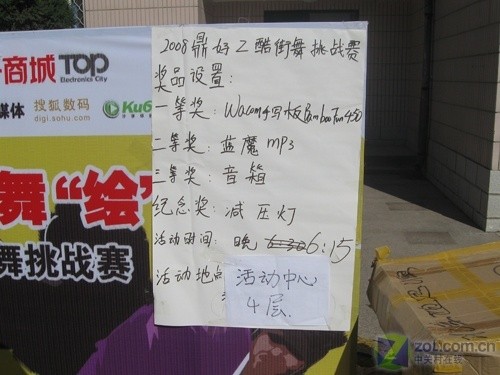 2008鼎好Z酷街舞挑战赛
奖品设置:
一等奖: Wacom手写板Bamboo Fun 450
二等奖: 蓝魔mp3
三等奖: 音箱
纪念奖: 减压灯
活动时间: 晚 6:15
活动地点
活动中心
4层.
商城TOP
Electronics City
媒体 搜狐数码
digi.sohu.com
Ku6
舞“绘”
舞挑战赛
zol.com.cn
中关村在线